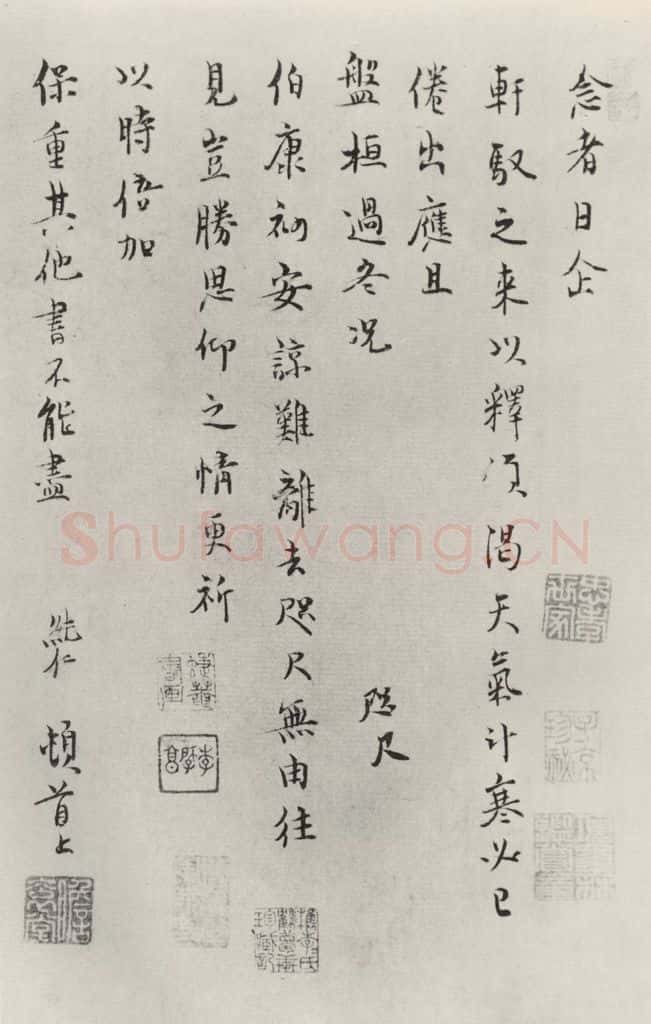 念者日企
軒馭之来以釋傾渴天氣計寒必已
倦出應且
盤桓過冬况
咫尺
伯康初安諒難離去咫尺無由往
見豈勝思仰之情更祈
以時倍加
保重其他書不能盡 純仁 頓首上
Shufawang.CN